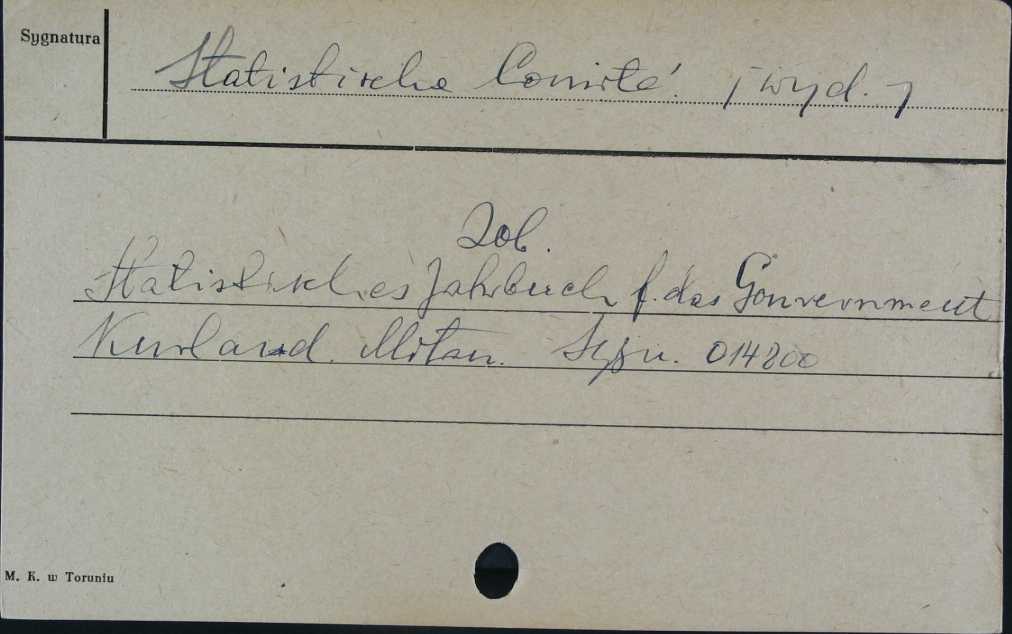 Sygnatura
Statistische Comité. [wyd.]
Zob.
Statistisches Jahrbuch f. das Gouvernment
Kurland. Mitau. Sygn. 014800
M. K. w Toruniu